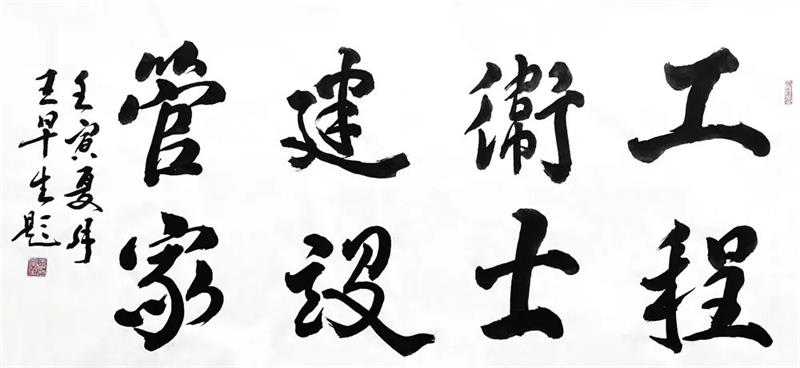 工程
衛士
建設
管家
壬寅夏
王早生题